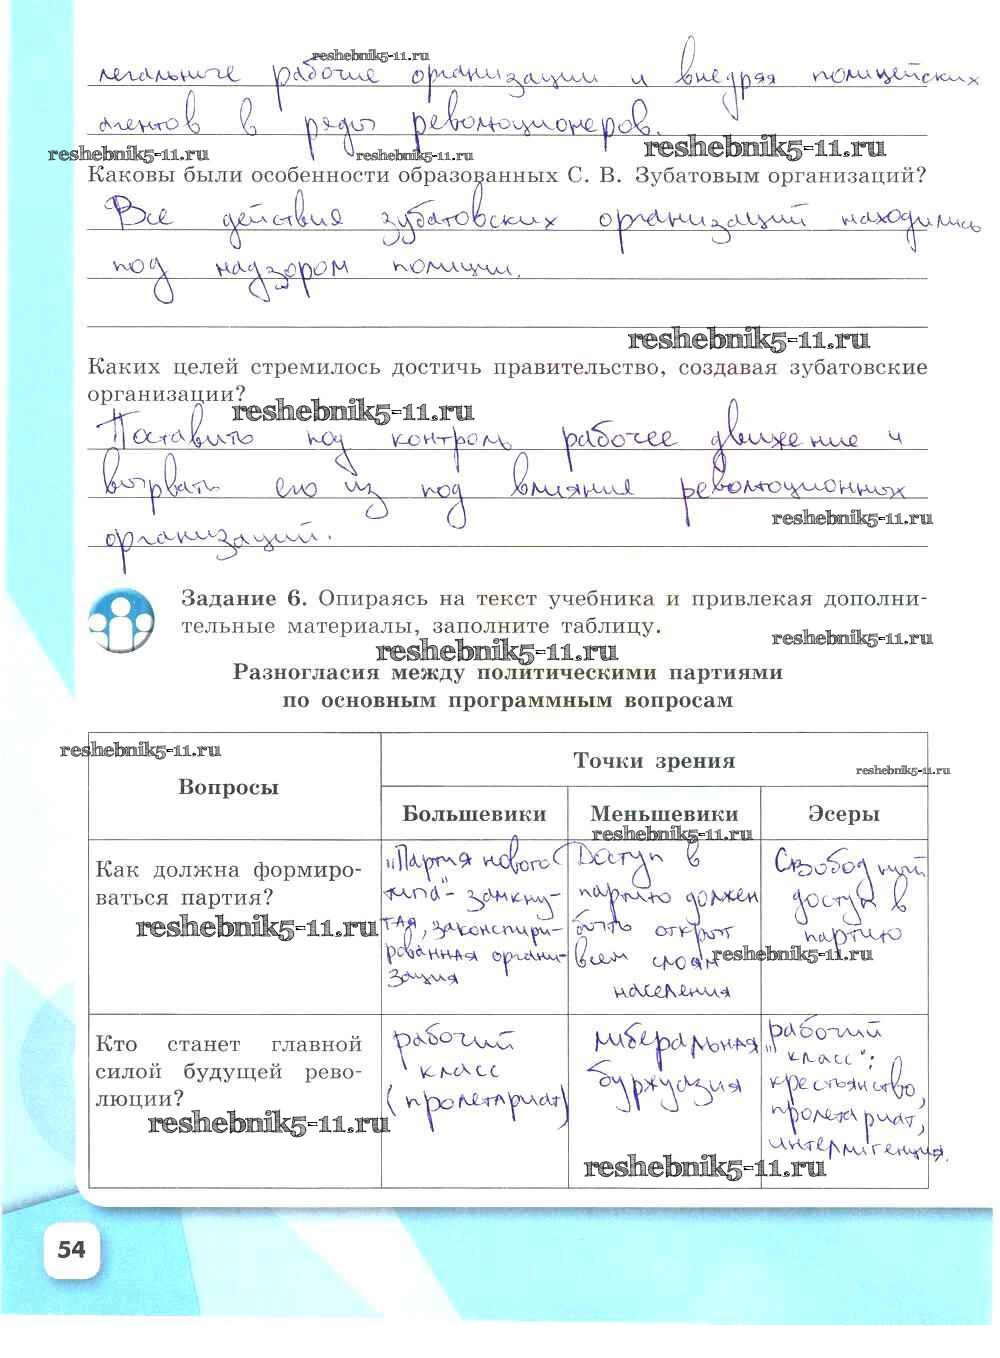 reshebnik5-11.ru
легальные рабочие организации и внедряя полицейских
агентов в ряды революционеров.
reshebnik5-11.ru reshebnik5-11.ru reshebnik5-11.ru
Каковы были особенности образованных С. В. Зубатовым организаций?
Все действия зубатовских организаций находились
под надзором полиции.
reshebnik5-11.ru
Каких целей стремилось достичь правительство, создавая зубатовские
организации?
reshebnik5-11.ru
Поставить под контроль рабочее движение и
вырвать его из под влияния революционных
reshebnik5-11.ru
организаций.
Задание 6. Опираясь на текст учебника и привлекая дополни-
тельные материалы, заполните таблицу.
reshebnik5-11.ru
reshebnik5-11.ru
Разногласия между политическими партиями
по основным программным вопросам
reshebnik5-11.ru
Вопросы
Точки зрения
reshebnik5-11.ru
Большевики
Меньшевики
Эсеры
reshebnik5-11.ru
Как должна формиро-
ваться партия?
reshebnik5-11.ru
"Партия нового
типа" - замкну-
тая, законспири-
рованная органи-
зация
Доступ в
партию должен
быть открыт
всем слоям
населения
Свободный
доступ в
партию
reshebnik5-11.ru
Кто станет главной
силой будущей рево-
люции?
reshebnik5-11.ru
рабочий
класс
(пролетариат)
либеральная
буржуазия
"рабочий
класс":
крестьянство,
пролетариат,
интеллигенция.
reshebnik5-11.ru
54